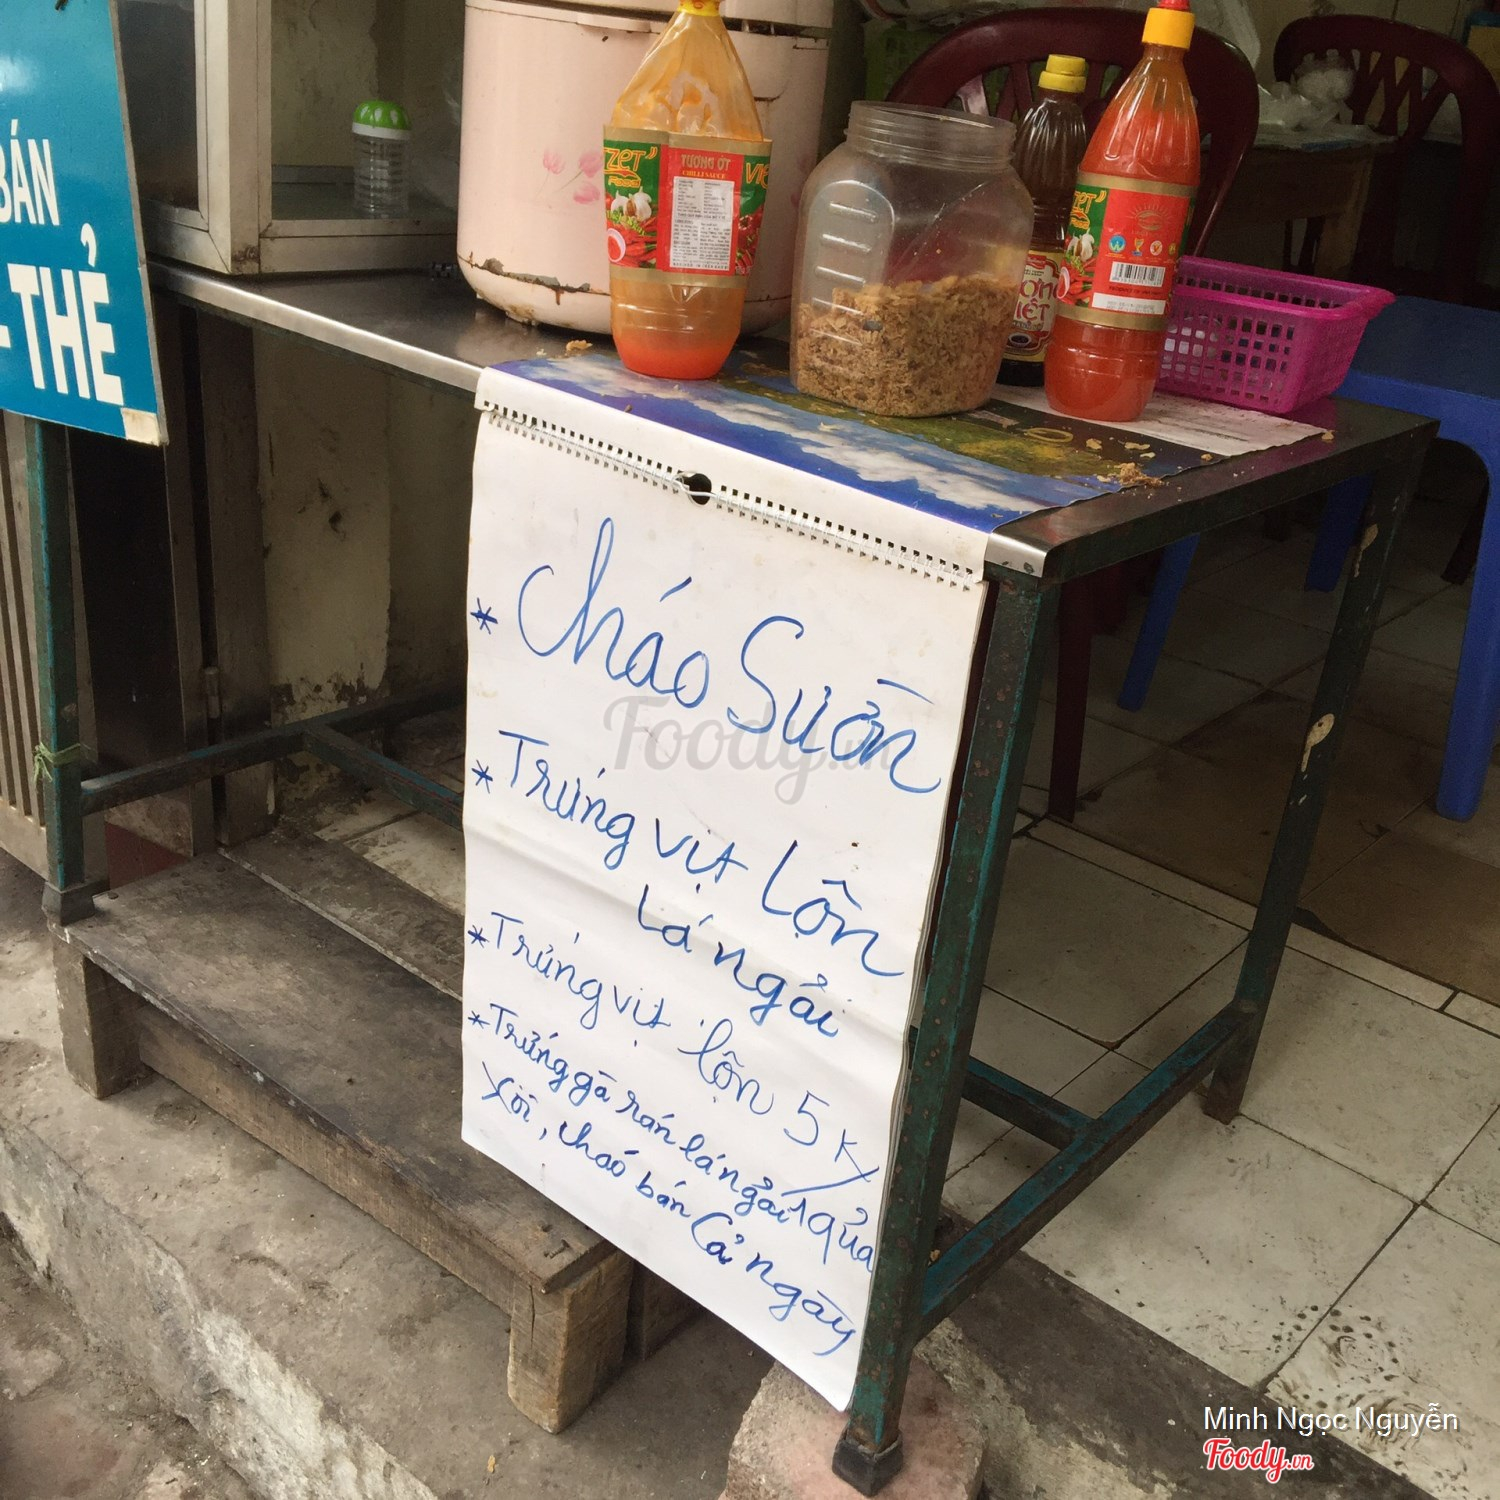 BÁN
- THẺ
ZET
TƯƠNG ỚT
CHILLI SAUCE
VIỆ
ZET
VIỆT
* Cháo Sườn
* Trứng vịt lộn
lá ngải
* Trứng vịt lộn 5k/1quả
* Trứng gà rán lá ngải
Xôi, cháo bán Cả ngày
Foody.vn
Minh Ngọc Nguyễn
Foody.vn